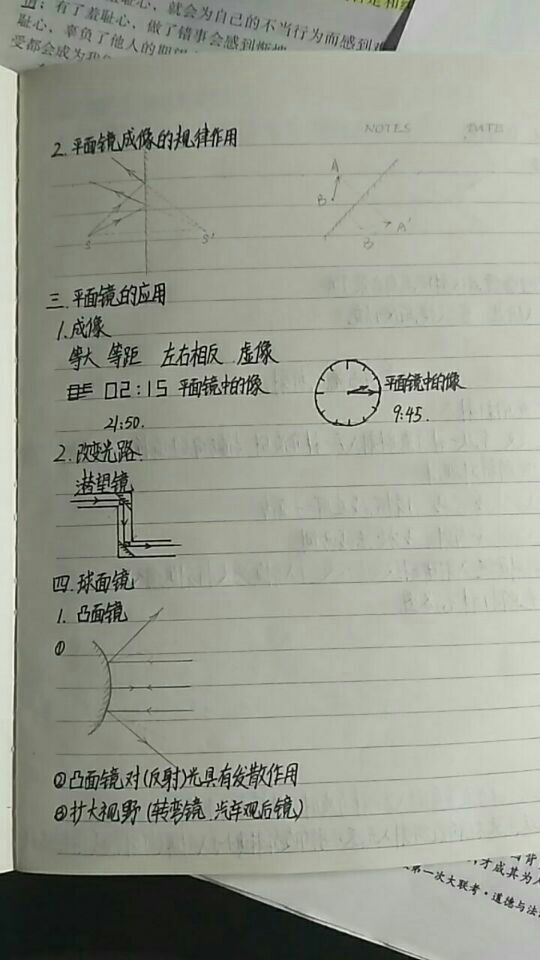 耻心，就会为自己的不当行为而感到
有了羞耻心，做了错事会感到惭愧
耻心，辜负了他人的期望
受都会成为我
NOTES DATE
2.平面镜成像的规律作用
S S'
A
B
A'
B
三.平面镜的应用
1.成像
等大 等距 左右相反 虚像
02:15 平面镜中的像
21:50.
平面镜中的像
9:45.
2.改变光路.
潜望镜
四.球面镜
1.凸面镜
①
②凸面镜对(反射)光具有发散作用
③扩大视野(转弯镜 汽车观后镜)
才成其为人
第一次大联考·道德与法